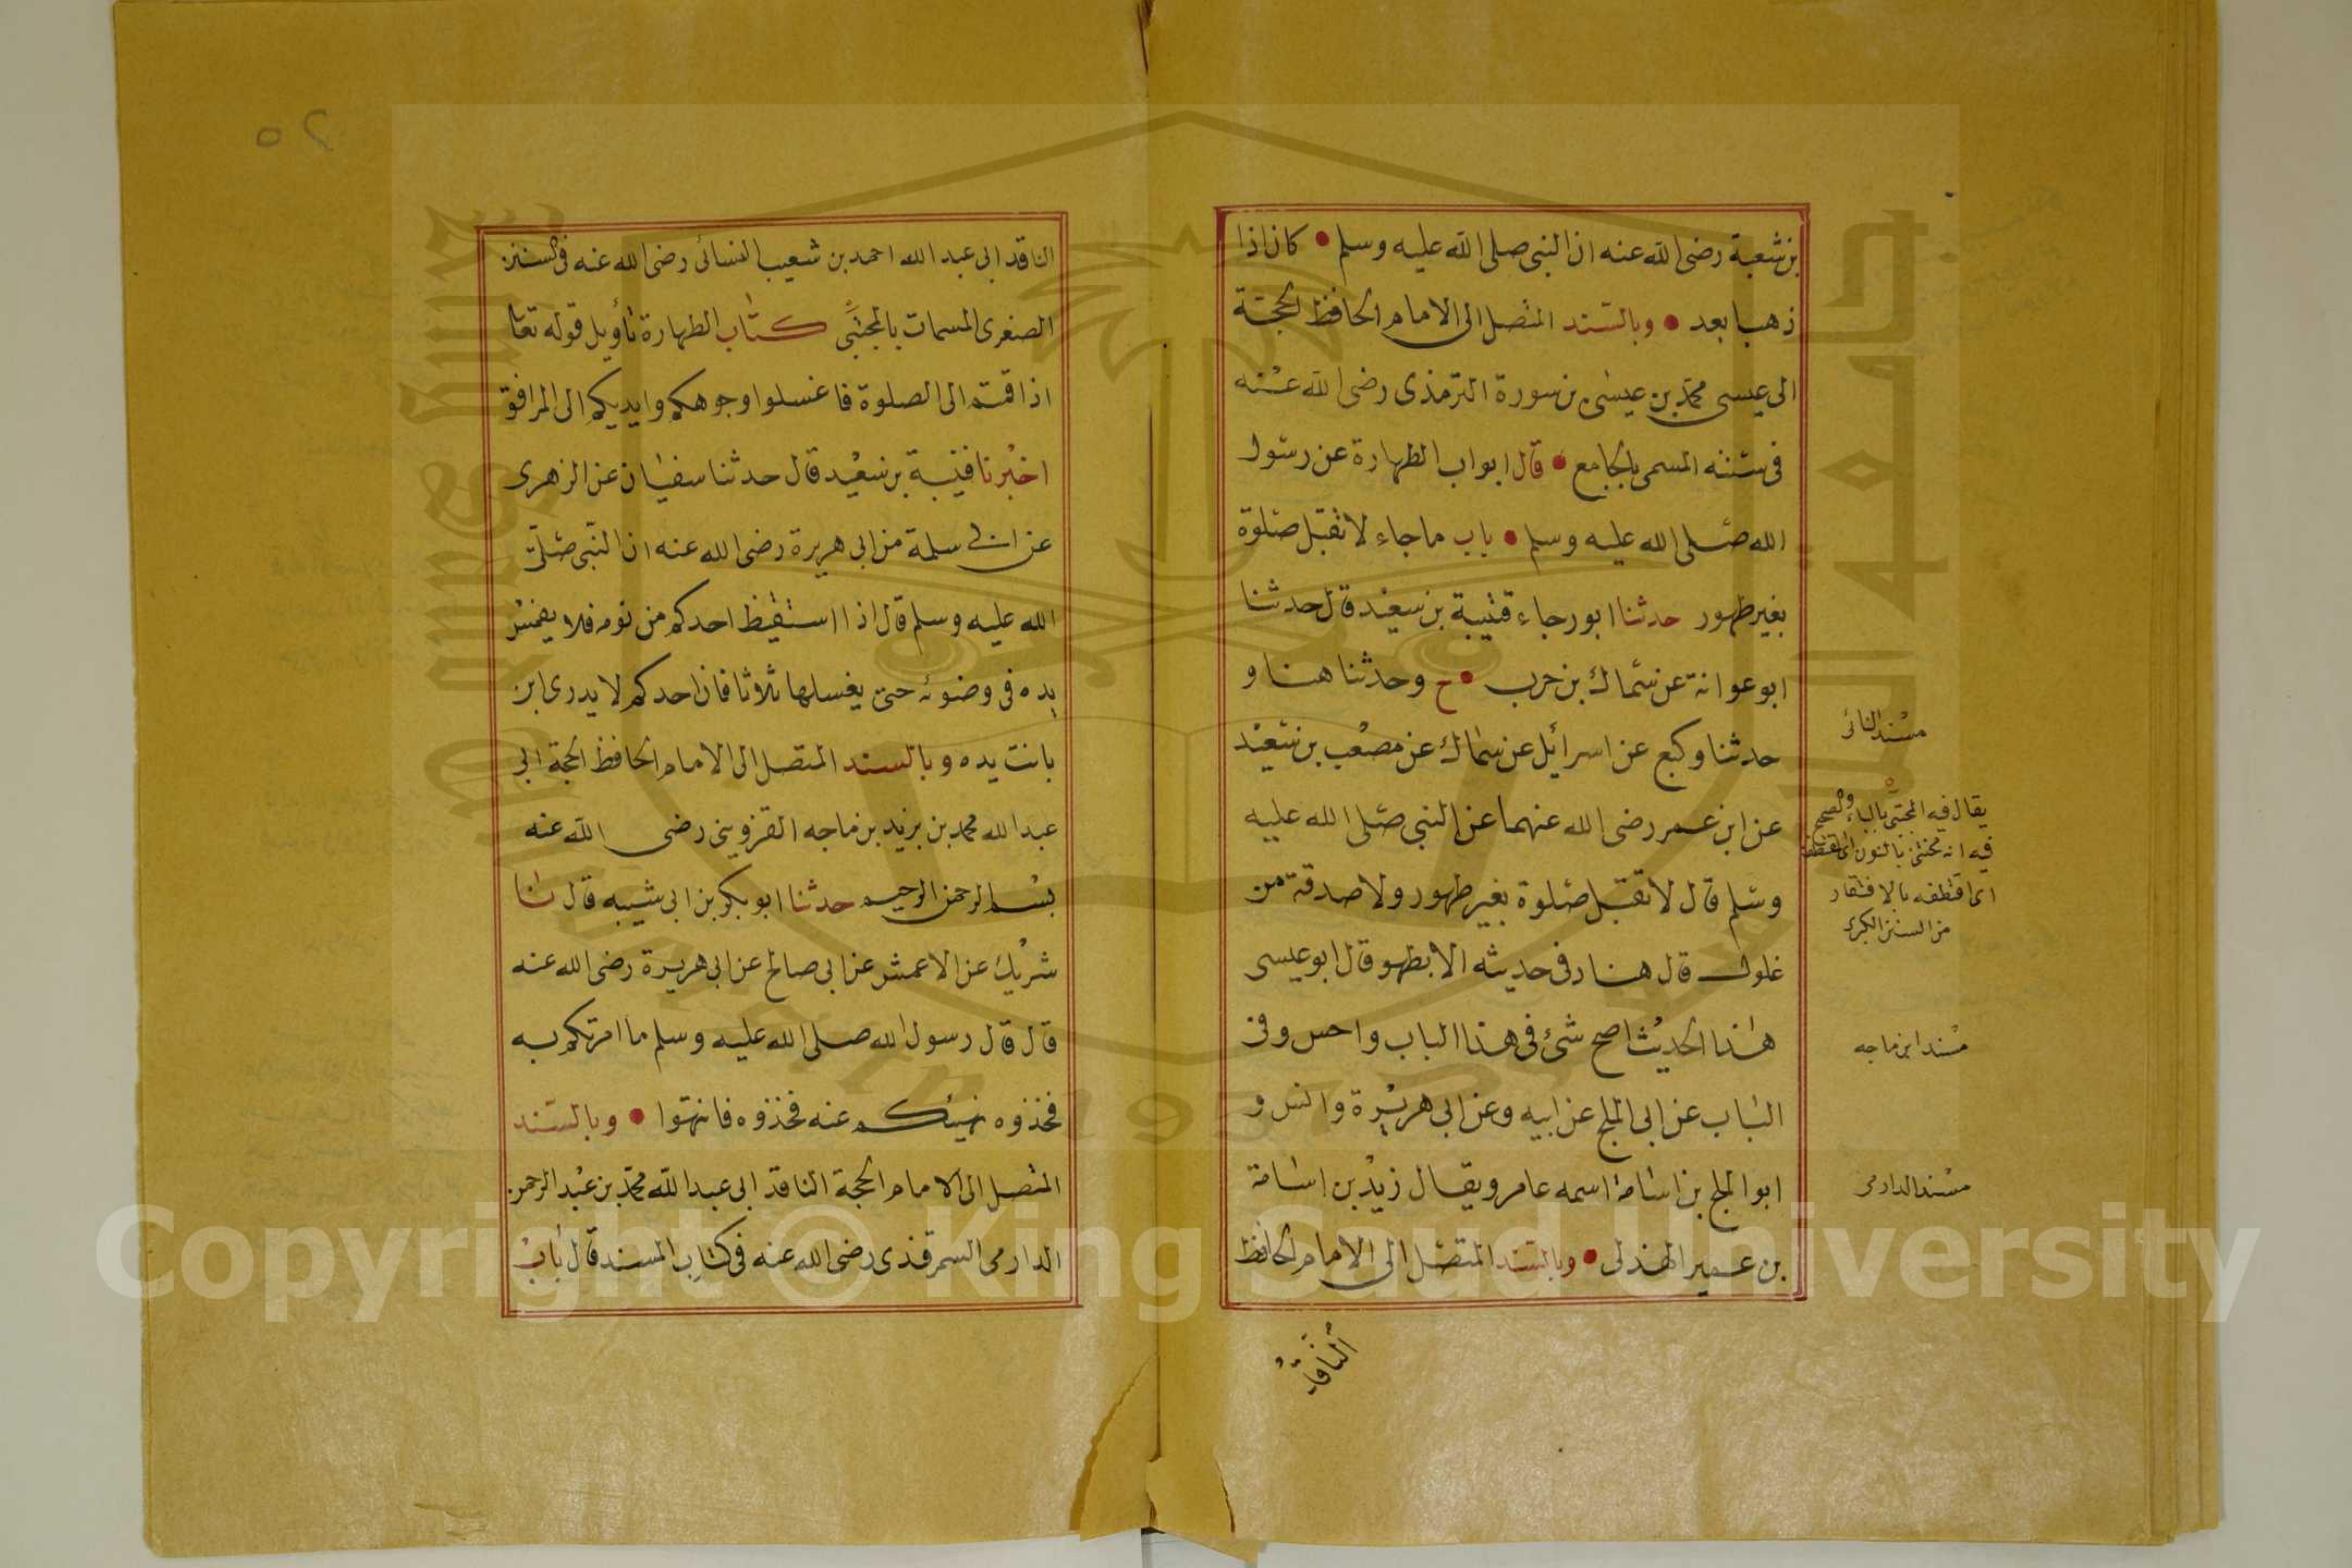 بن شعبة رضى الله عنه ان النبى صلى الله عليه وسلم • كان اذا
ذهبا بعد • وبالسند المتصل الى الامام الحافظ الحجة
ابى عيسى محمد بن عيسى بن سورة الترمذى رضى الله عنه
فى سننه المسمى بالجامع • قال ابواب الطهارة عن رسول
الله صلى الله عليه وسلم • باب ما جاء لا تقبل صلوة
بغير طهور حدثنا ابو رجاء قتيبة بن سعيد قال حدثنا
ابو عوانة عن سماك بن حرب • ح وحدثنا هنا و
حدثنا وكيع عن اسرائيل عن سماك عن مصعب بن سعيد
عن ابن عمر رضى الله عنهما عن النبى صلى الله عليه
وسلم قال لا تقبل صلوة بغير طهور ولا صدقة من
غلول قال هناد فى حديثه الا بطهو قال ابو عيسى
هذا الحديث اصح شئ فى هذا الباب واحس وفى
الباب عن ابى الملح عن ابيه وعن ابى هريرة وانس و
ابو الملح بن اسامة اسمه عامر ويقال زيد بن اسامة
بن عمير الهذلى • وبالسند المتصل الى الامام الحافظ
الناقد
مسند النسائى
يقال فيه المجتبى بالباء والصحيح
فيه انه مجتنى بالنون
اى اقتطفه بالافتقار
من السنن الكبرى
مسند ابن ماجه
مسند الدارمى
٢٥
الناقد ابى عبد الله احمد بن شعيب النسائى رضى الله عنه فى السنن
الصغرى المسمات بالمجتبى كتاب الطهارة تأويل قوله تعا
اذا قمتم الى الصلوة فاغسلوا وجوهكم وايديكم الى المرافق
اخبرنا قتيبة بن سعيد قال حدثنا سفيان عن الزهرى
عن ابى سلمة من ابى هريرة رضى الله عنه ان النبى صلى
الله عليه وسلم قال اذا استقيظ احدكم من نومه فلا يغمس
يده فى وضوئه حتى يغسلها ثلاثا فان احدكم لا يدرى اين
باتت يده وبالسند المتصل الى الامام الحافظ الحجة ابى
عبد الله محمد بن يزيد بن ماجه القزوينى رضى الله عنه
بسم الرحمن الرحيم حدثنا ابو بكر بن ابى شيبه قال ثنا
شريك عن الاعمش عن ابى صالح عن ابى هريرة رضى الله عنه
قال قال رسول الله صلى الله عليه وسلم ما امرتكم به
فخذوه نهيتكم عنه فخذوه فانتهوا • وبالسند
المتصل الى الامام الحجة الناقد ابى عبد الله محمد بن عبد الرحمن
الدارمى السمرقندى رضى الله عنه فى كتاب المسند قال باب
Copyright © King Saud University